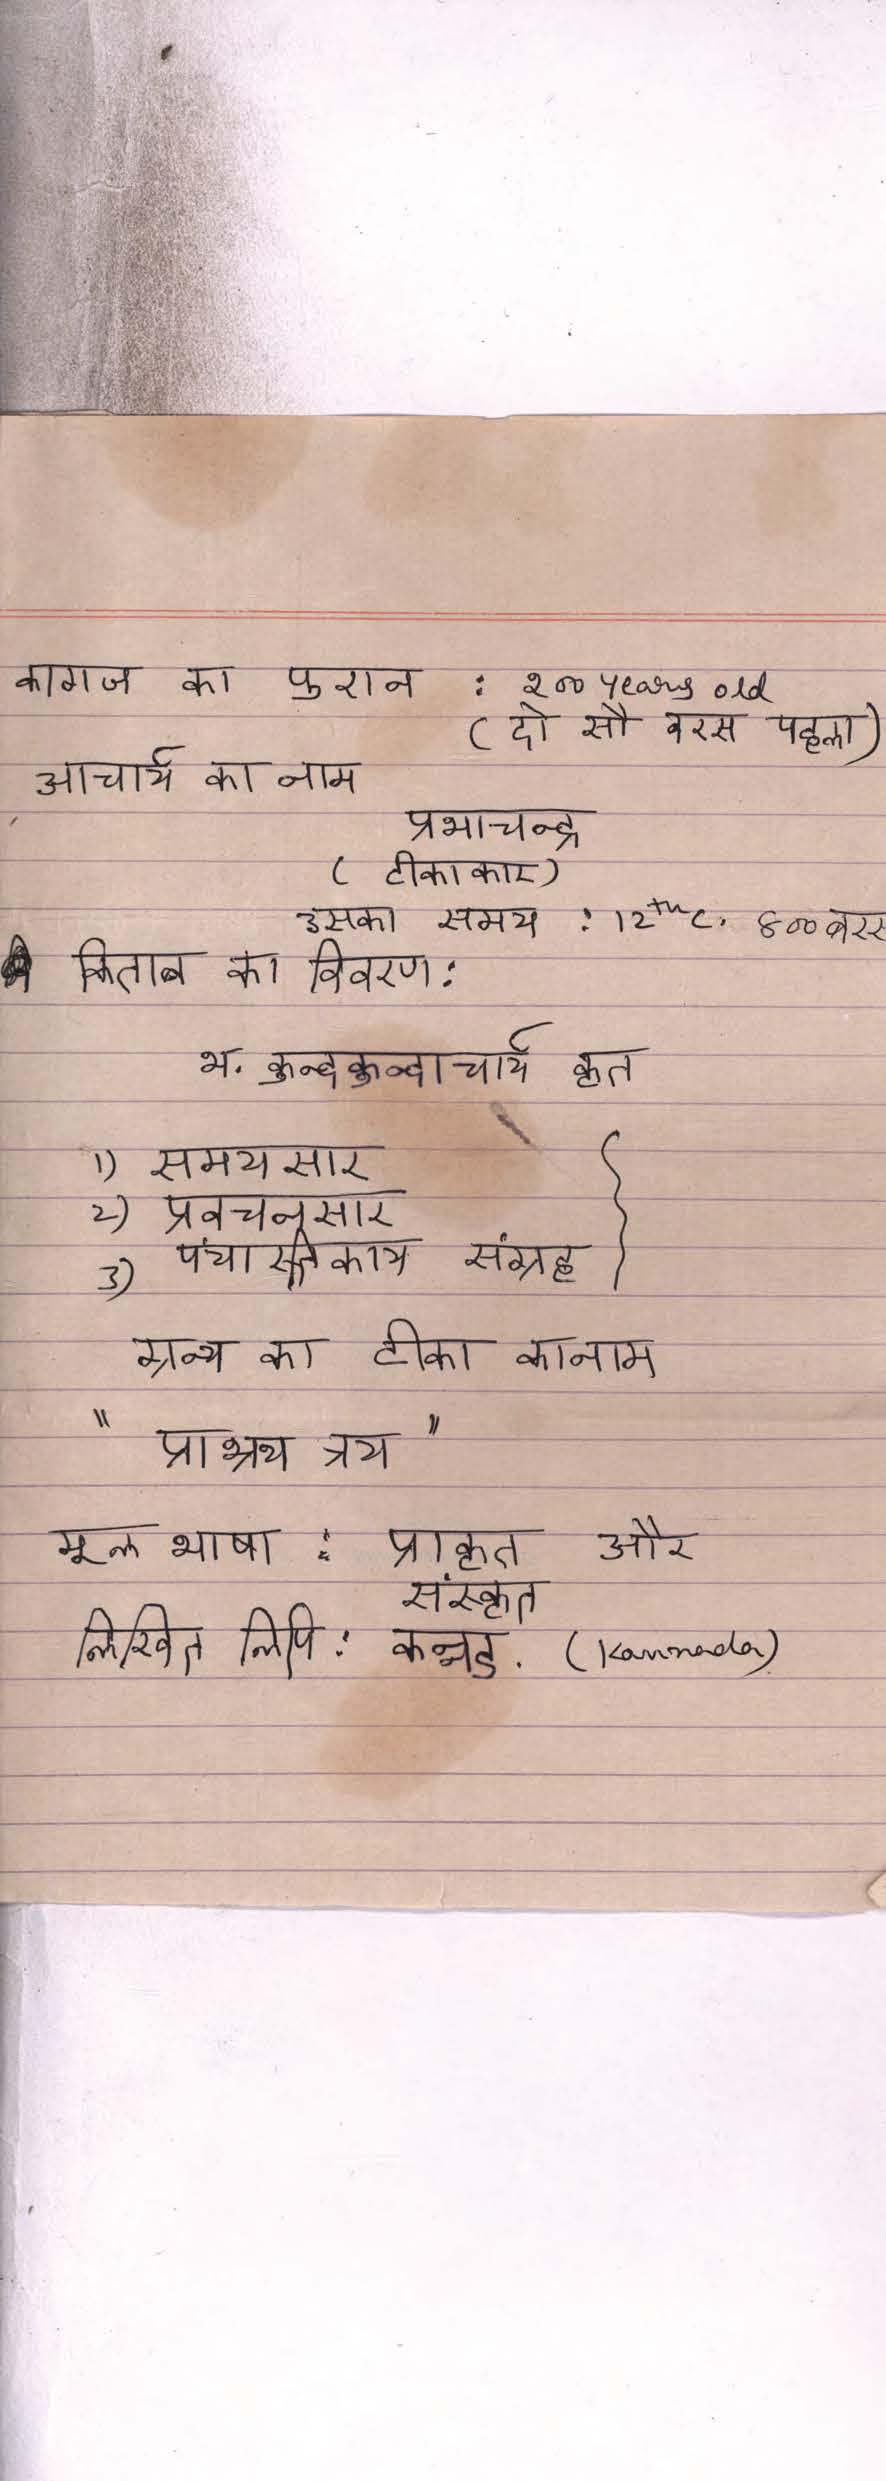 कागज का पुरान : २०० years old
(दो सौ बरस पहला)
आचार्य का नाम
प्रभाचन्द्र
(टीकाकार)
उसका समय : 12th C. ८०० बरस
किताब का विवरण :
भ. कुन्दकुन्दाचार्य कृत
1) समयसार
2) प्रवचनसार
3) पंचास्तिकाय संग्रह
ग्रन्थ का टीका का नाम
" प्राभ्रथ त्रय "
मूल भाषा : प्राकृत और
संस्कृत
लिखित लिपि : कन्नड. (Kannada)